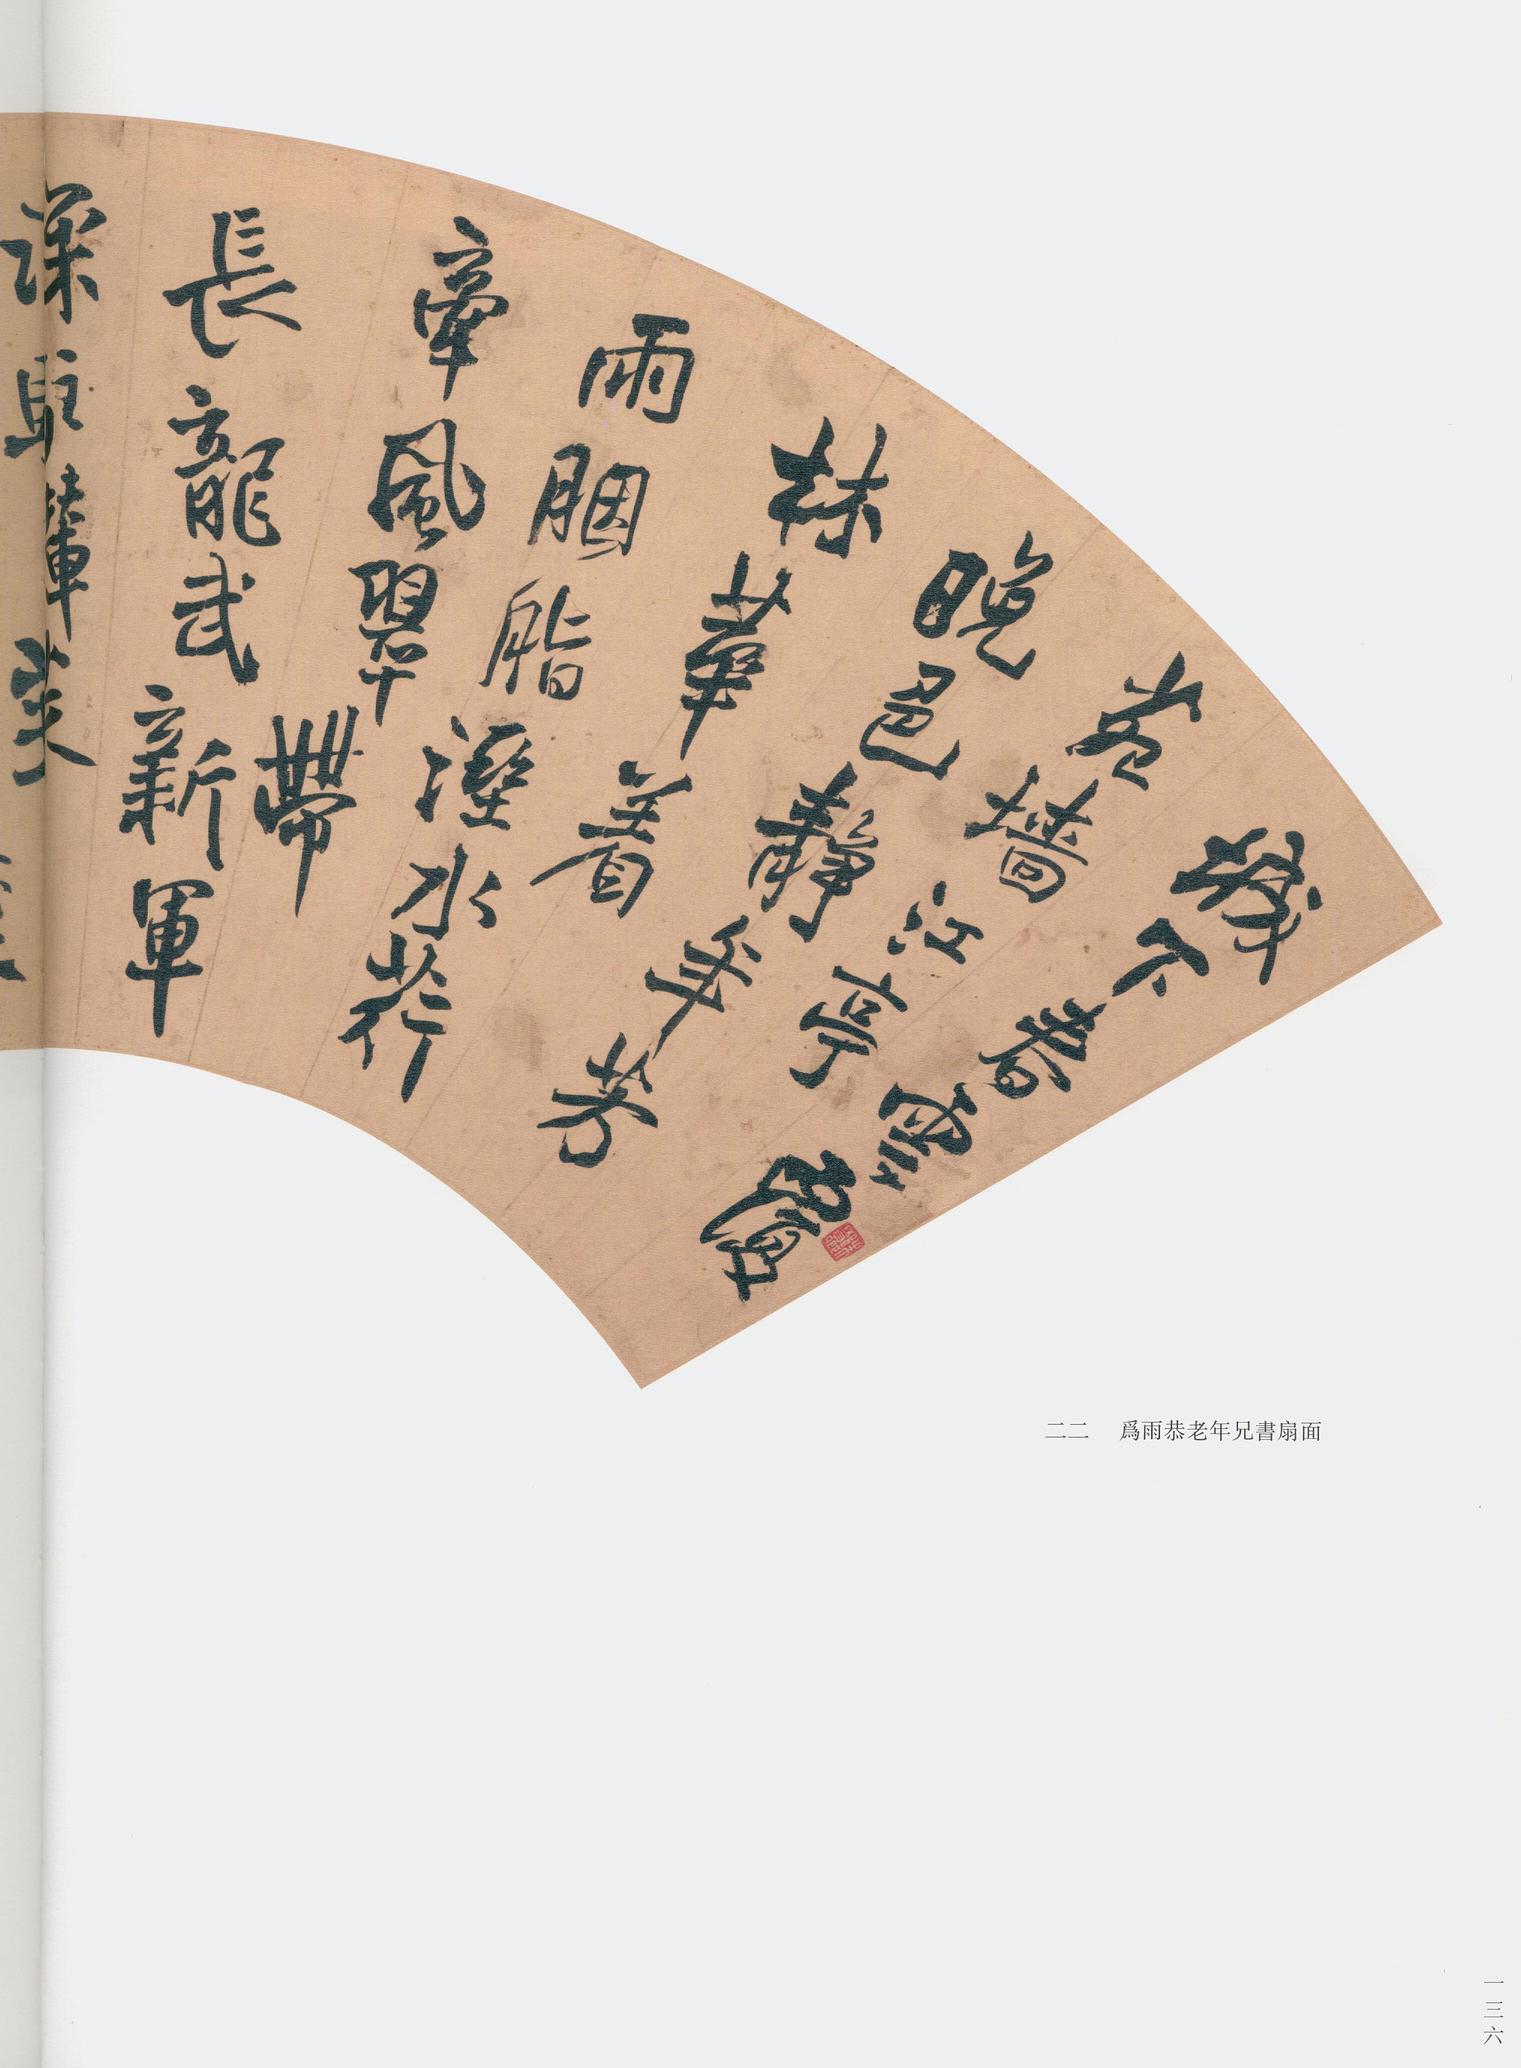 城下春雲覆
苑墻江亭
晚色靜年芳
林華著
雨胭脂溼水荇
牽風翠帶
長龍武新軍
深駐輦芙
二二　爲雨恭老年兄書扇面
一三六